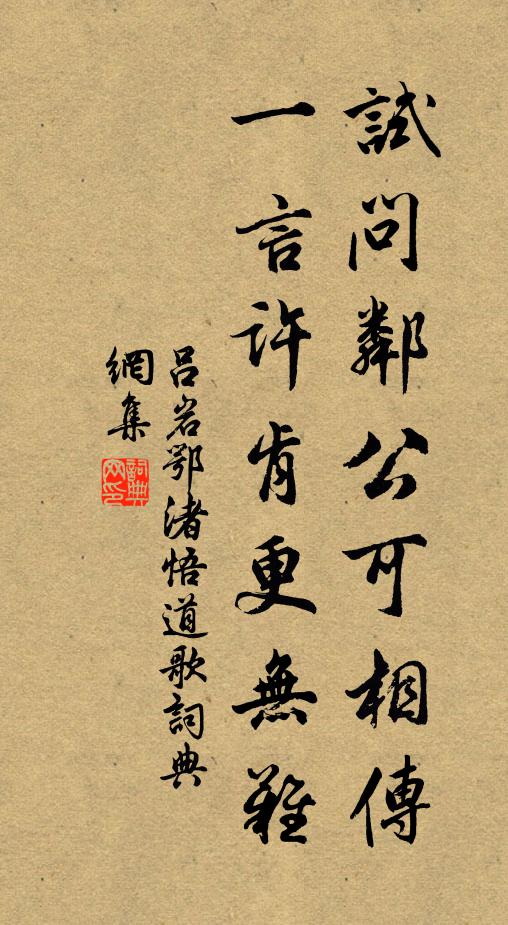 試問鄰公可相傳
一言許肯更無難
呂岩鄂渚悟道歌詞典
網集
詞典
网印